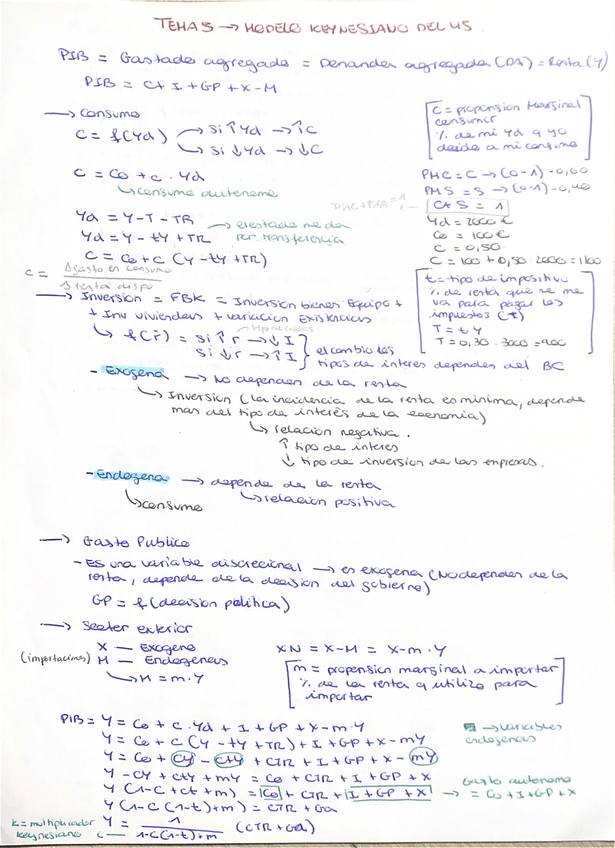 TEMA 5 → MODELO KEYNESIANO DEL 45
PIB = Gastado agregado = Demandas agregada (DA) = Renta (Y)
PIB = C + I + GP + X - M
→ Consumo
C = f(Yd) → Si ↑ Yd → ↑C
→ Si ↓ Yd → ↓C
C = propension Marginal
consumir
% de mi Yd q yo
dedico a mi consumo
C = Co + c · Yd
↳ Consumo autonomo
PMC = C → (0-1) - 0,60
PMS = S → (0-1) - 0,40
C + S = 1
Yd = Y - T - TR
Yd = Y - tY + TR
→ el estado me da
por transferencia
C = Co + c (Y - tY + TR)
Yd = 2000 €
Co = 100 €
C = 0,50
C = 100 + 0,50 · 2000 = 1100
C = Δ gasto en consumo
Δ renta dispo
→ Inversion = FBK = Inversion bienes Equipo +
+ Inv viviendas + variacion Existencias
↳ f(r) = si ↑ r → ↓ I
si ↓ r → ↑ I
el cambio los
tipos de interes dependen del BC
t = tipo de impositivo
% de renta que se me
va para pagar los
impuestos (T)
T = t Y
T = 0,30 · 3000 = 900
- Exogena → No dependen de la renta
↳ Inversion (la incidencia de la renta es minima, depende
mas del tipo de interés de la economia)
↳ relacion negativa.
↑ tipo de interes
↓ tipo de inversion de las empresas.
- Endogena → depende de la renta
↳ consumo
↳ relacion positiva
→ Gasto Publico
- Es una variable discrecional → es exogena (No depende de la
renta, depende de la decision del gobierno)
GP = f (decision politica)
→ Sector exterior
X — Exogena
(importaciones) M — Endogenas
↳ M = m · Y
XN = X - M = X - m · Y
m = propension marginal a importar
% de la renta q utilizo para
importar
PIB = Y = Co + c · Yd + I + GP + X - m · Y
Y = Co + c (Y - tY + TR) + I + GP + X - mY
Y = Co + cY - ctY + CTR + I + GP + X - mY
→ variables
endogenas
Y - cY + ctY + mY = Co + CTR + I + GP + X
Y (1 - C + ct + m) = Co + CTR + I + GP + X →
Gasto autonomo
= Co + I + GP + X
Y (1 - C (1 - t) + m) = CTR + Ga
K = multiplicador
Keynesiano
Y = 1 / 1 - C (1 - t) + m (CTR + Ga)